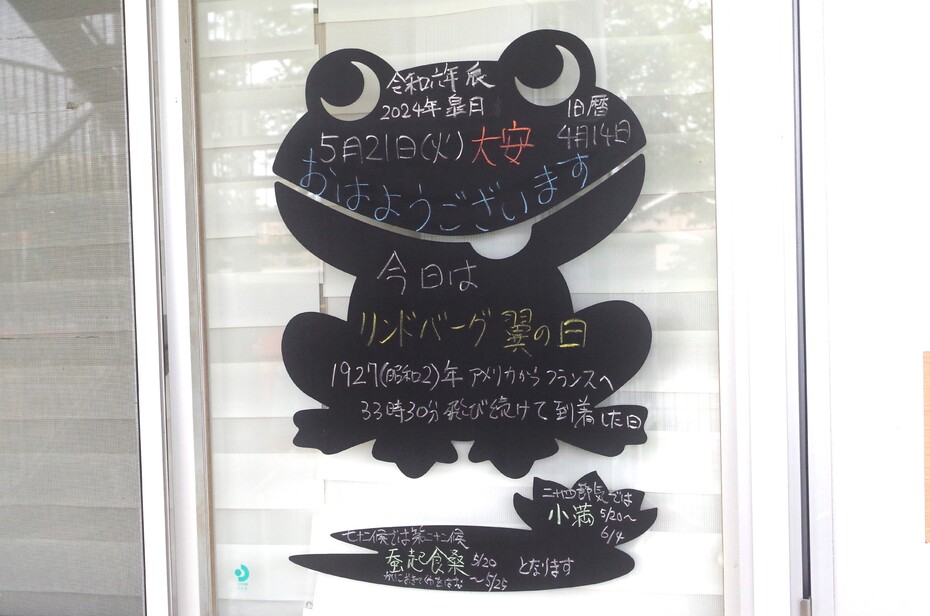 令和六年 辰
2024年 皐月
旧暦
4月14日
5月21日(火) 大安
おはようございます
今日は
リンドバーグ 翼の日
1927(昭和2)年 アメリカから フランスへ
33時30分 飛び続けて 到着した日
二十四節気では
小満 5/20～
6/4
七十二候では第二十二候
蚕起食桑 5/20
～5/25
かいこおきてくわをはむ
となります